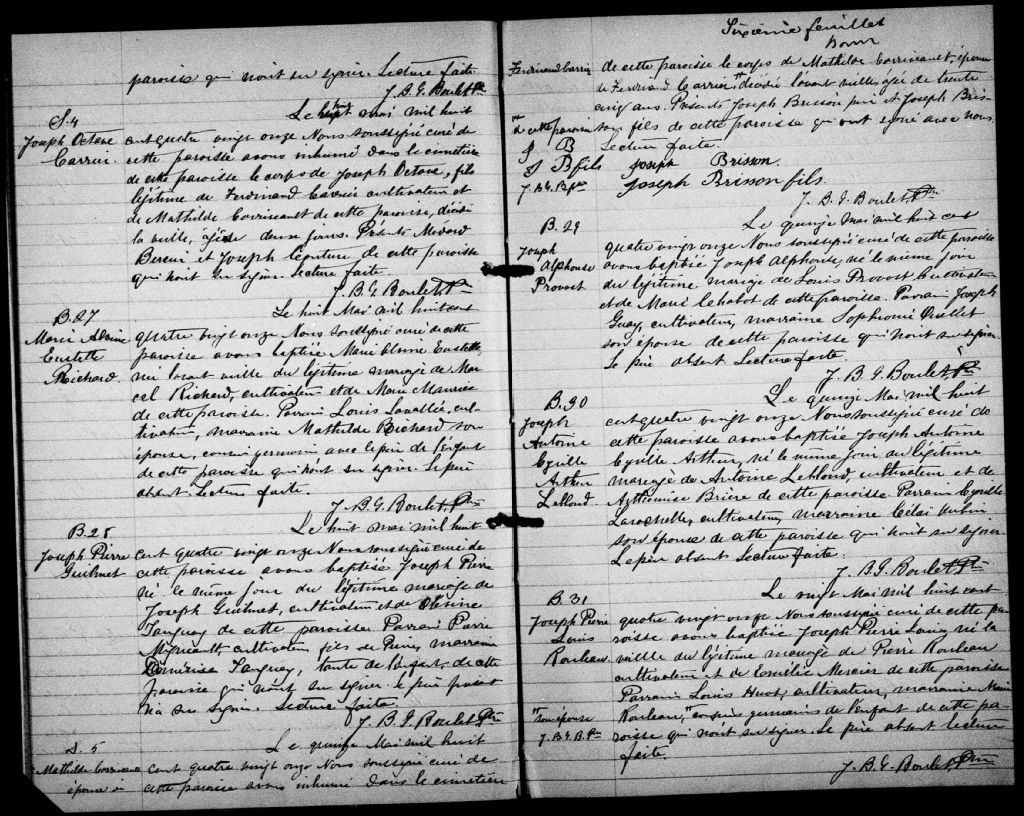 paroisse qui n'ont su signer. Lecture faite
J. B. G. Boulet Ptre
S. 4
Joseph Octave
Carrier
Le huit mai mil huit
cent quatre vingt onze Nous soussigné curé de
cette paroisse avons inhumé dans le cimetière
de cette paroisse le corps de Joseph Octave, fils
légitime de Ferdinand Carrier cultivateur et
de Mathilde Corriveault de cette paroisse, décédé
la veille, âgé de deux jours. Présents Médard
et Joseph de cette paroisse
qui n'ont su signer. Lecture faite.
J. B. G. Boulet Ptre
B. 27
Marie
Eustelle
Richard
Le huit Mai mil huit cent
quatre vingt onze Nous soussigné curé de cette
paroisse avons baptisé Marie Eustelle,
née l'avant veille du légitime mariage de Mar
cel Richard, cultivateur et de Marie
de cette paroisse. Parrain Louis Lavallée, cul-
tivateur, marraine Mathilde Richard son
épouse, cousin germain avec le père de l'enfant
de cette paroisse qui n'ont su signer. Le père
absent. Lecture faite.
J. B. G. Boulet, Ptre
B. 28
Joseph Pierre
Guilmet
Le huit mai mil huit
cent quatre vingt onze Nous soussigné curé de
cette paroisse avons baptisé Joseph Pierre
né le même jour du légitime mariage de
Joseph Guilmet, cultivateur et de
Tanguay de cette paroisse Parrain Pierre
cultivateur, fils de Pierre, marraine
Tanguay, tante de l'enfant de cette
paroisse qui n'ont su signer le père présent
n'a su signer. Lecture faite.
J. B. G. Boulet Ptre
S. 5
Mathilde Corriveault
épouse de
Le quinze Mai mil huit
cent quatre vingt onze Nous soussigné curé de
cette paroisse avons inhumé dans le cimetière
Sixième feuillet
Ferdinand Carrier
de cette paroisse le corps de Mathilde Corriveault, épouse
de Ferdinand Carrier " décédée l'avant veille, âgée de trente
cinq ans. Présents Joseph Brisson père et Joseph Bris-
" de cette paroisse
son fils de cette paroisse qui ont signé avec nous.
J B
Lecture faite.
J B fils
Joseph Brisson.
J. B. G. B. Ptre
Joseph Brisson fils.
J. B. G. Boulet Ptre
B. 29
Joseph
Alphonse
Provost
Le quinze Mai mil huit cent
quatre vingt onze Nous soussigné curé de cette paroisse
avons baptisé Joseph Alphonse, né le même jour
du légitime mariage de Louis Provost Cultivateur
et de Marie Chabot de cette paroisse. Parrain Joseph
Guay, cultivateur, marraine Sophronie Ouellet
son épouse de cette paroisse qui n'ont su signer.
Le père absent Lecture faite.
J. B. G. Boulet, Ptre
B. 30
Joseph
Antoine
Cyrille
Arthur
Leblond
Le quinze Mai mil huit
cent quatre vingt onze Nous soussigné curé de
cette paroisse avons baptisé Joseph Antoine
Cyrille Arthur, né le même jour du légitime
mariage de Antoine Leblond, cultivateur et de
Arthémise Brière de cette paroisse Parrain Cyrille
Larochelle, cultivateur, marraine Aubin
son épouse de cette paroisse qui n'ont su signer.
Le père absent Lecture faite.
J. B. G. Boulet Ptre
B. 31
Joseph Pierre
Louis
Rouleau
Le vingt Mai mil huit cent
quatre vingt onze Nous soussigné curé de cette pa-
roisse avons baptisé Joseph Pierre Louis, né la
veille du légitime mariage de Pierre Rouleau
cultivateur et de Mercier de cette paroisse
Parrain Louis Huot, cultivateur, marraine Marie
" son épouse
Rouleau, " cousins germains de l'enfant de cette pa-
J. B. G. B. Ptre
roisse qui n'ont su signer. Le père absent Lecture
faite.
J. B. G. Boulet, Ptre